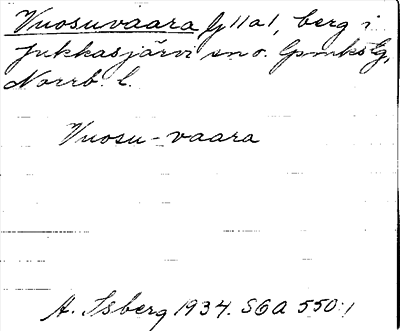 Vuosuvaara G 11 a 1, berg i
Jukkasjärvi sn o. Gpmks lg,
Norrb. l.
Vuosu-vaara
A. Isberg 1934. SGA 550:1